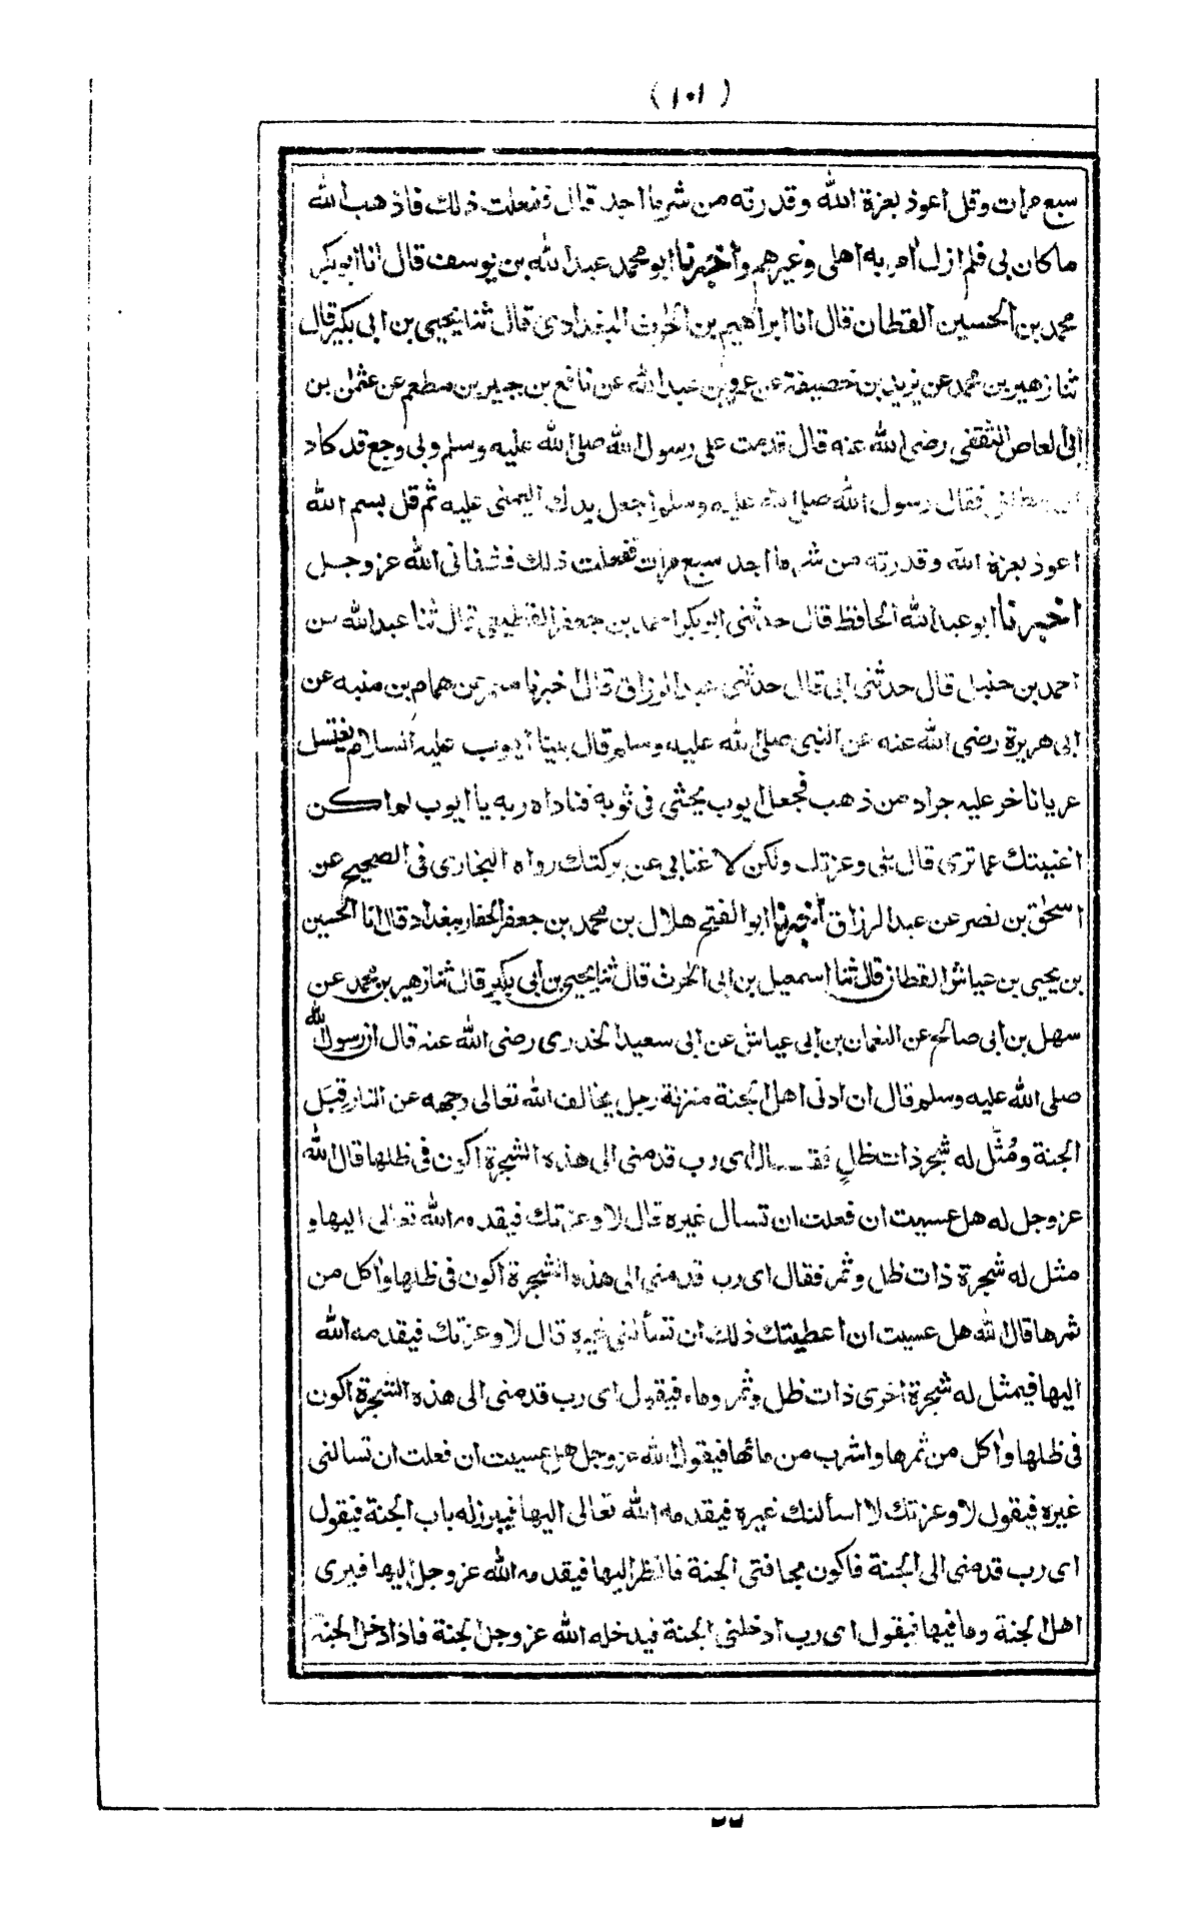 (١٠١)
سبع مرات وقل اعوذ بعزة الله وقدرته من شر ما اجد قال ففعلت ذلك فاذهب الله
ما كان بي فلم ازل امر به اهلى وغيرهم واخبرنا ابو محمد عبد الله بن يوسف قال انا ابو بكر
محمد بن الحسين القطان قال انا ابراهيم بن الحرث البغدادى قال ثنا يحيى بن ابى بكير قال
ثنا زهير بن محمد عن يزيد بن خصيفة عن عمرو بن عبد الله عن نافع بن جبير بن مطعم عن عثمن بن
ابى العاص الثقفى رضى الله عنه قال قدمت على رسول الله صلى الله عليه وسلم وبى وجع قد كاد
فقال رسول الله صلى الله عليه وسلم اجعل يدك اليمنى عليه ثم قل بسم الله
اعوذ بعزة الله وقدرته من شر ما اجد سبع مرات ففعلت ذلك فشفانى الله عز وجل
اخبرنا ابو عبد الله الحافظ قال حدثنى ابو بكر احمد بن جعفر القطيعى قال ثنا عبد الله بن
احمد بن حنبل قال حدثنى ابى قال حدثنى عبد الرزاق قال اخبرنا معمر عن همام بن منبه عن
ابى هريرة رضى الله عنه عن النبى صلى الله عليه وسلم قال بينا ايوب عليه السلام يغتسل
عريانا خر عليه جراد من ذهب فجعل ايوب يحثى فى ثوبه فناداه ربه يا ايوب لم اكن
اغنيتك عما ترى قال بلى وعزتك ولكن لا غنابى عن بركتك رواه البخارى فى الصحيح عن
اسحٰق بن نصر عن عبد الرزاق اخبرنا ابو الفتح هلال بن محمد بن جعفر الحفار ببغداد قال انا الحسين
بن يحيى بن عياش القطان قال ثنا اسمعيل بن ابى الحرث قال ثنا يحيى بن أبى بكير قال ثنا زهير بن محمد عن
سهل بن أبى صالح عن النعمان بن ابى عياش عن ابى سعيد الخدرى رضى الله عنه قال ان رسول الله
صلى الله عليه وسلم قال ان ادنى اهل الجنة منزلة رجل يخالف الله تعالى وجهه عن النار قِبَل
الجنة ومُثِّل له شجر ذات ظلٍ فقـــال اى رب قدمنى الى هذه الشجرة اكون فى ظلها قال الله
عز وجل له هل عسيت ان فعلت ان تسال غيره قال لا وعزتك فيقدمه الله تعالى اليها و
مثل له شجرة ذات ظل وثمر فقال اى رب قدمنى الى هذه الشجرة اكون فى ظلها واكل من
ثمرها قال الله هل عسيت ان اعطيتك ذلك ان تسألنى غيره قال لا وعزتك فيقدمه الله
اليها فيمثل له شجرة اخرى ذات ظل وثمر وماء فيقول اى رب قدمنى الى هذه الشجرة اكون
فى ظلها واكل من ثمرها واشرب من مائها فيقول الله عز وجل هل عسيت ان فعلت ان تسالنى
غيره فيقول لا وعزتك لا اسألنك غيره فيقدمه الله تعالى اليها فيبرز له باب الجنة فيقول
اى رب قدمنى الى الجنة فاكون بحافتى الجنة فانظر اليها فيقدمه الله عز وجل اليها فيرى
اهل الجنة وما فيها فيقول اى رب ادخلنى الجنة فيدخله الله عز وجل الجنة فاذا دخل الجنة